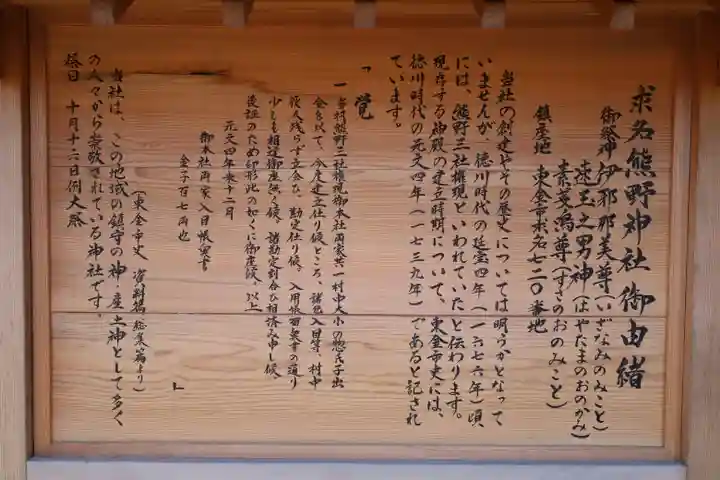 求名熊野神社御由緒
御祭神 伊邪那美尊(いざなみのみこと)
速玉之男神(はやたまのおのかみ)
素戔嗚尊(すさのおのみこと)
鎮座地 東金市求名七二〇番地
当社の創建やその歴史については明らかとなって
いませんが、徳川時代の延宝四年(一六七六年)頃、
には、熊野三社権現といわれていたと伝わります。
現存する御殿の建立時期について、東金市史には、
徳川時代の元文四年(一七三九年)であると記され
ています。
「覚
一 当村熊野三社権現御本社両家共一村中大小の惣氏子出
金を以て、今度建立仕り候ところ、諸色入目等、村中
役人残らず立合ひ、勘定仕り候。入用帳面奥書の通り
少しも相違御座無く候。諸勘定割合ひ相済み申し候。
後証のため印形此の如くに御座候。以上
元文四年未十二月
御本社両家入目帳奥書
金子百七両也
」
(東金市史 資料篇(総集篇より)
当社は、この地域の鎮守の神・産土神として多く
の人々から崇敬されている神社です。
祭日 十月十六日例大祭